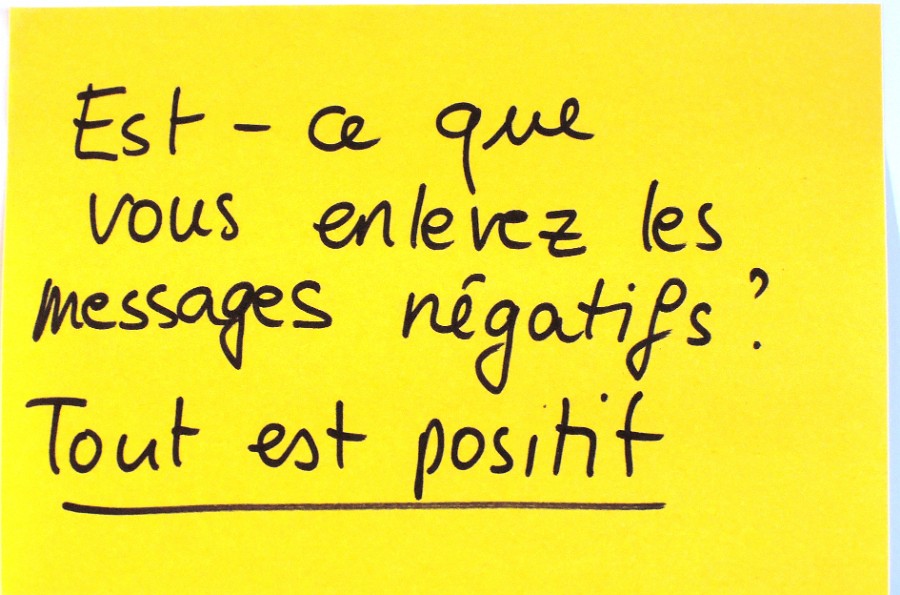 Est-ce que
vous enlevez les
messages négatifs?
Tout est positif